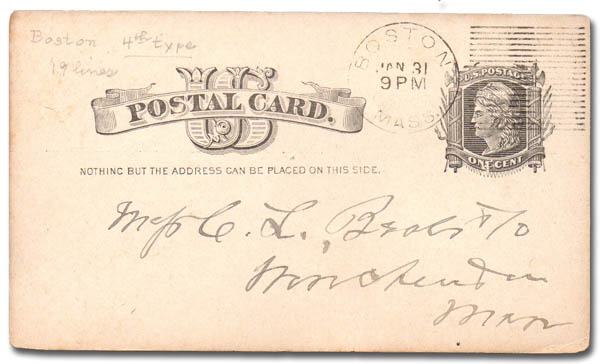 Boston 4th type
19 lines
BOSTON
JAN 31
9 PM
MASS.
U.S. POSTAGE
ONE CENT
US
POSTAL CARD.
NOTHING BUT THE ADDRESS CAN BE PLACED ON THIS SIDE.
Mess C. L. Beals & Co
Winchendon
Mass